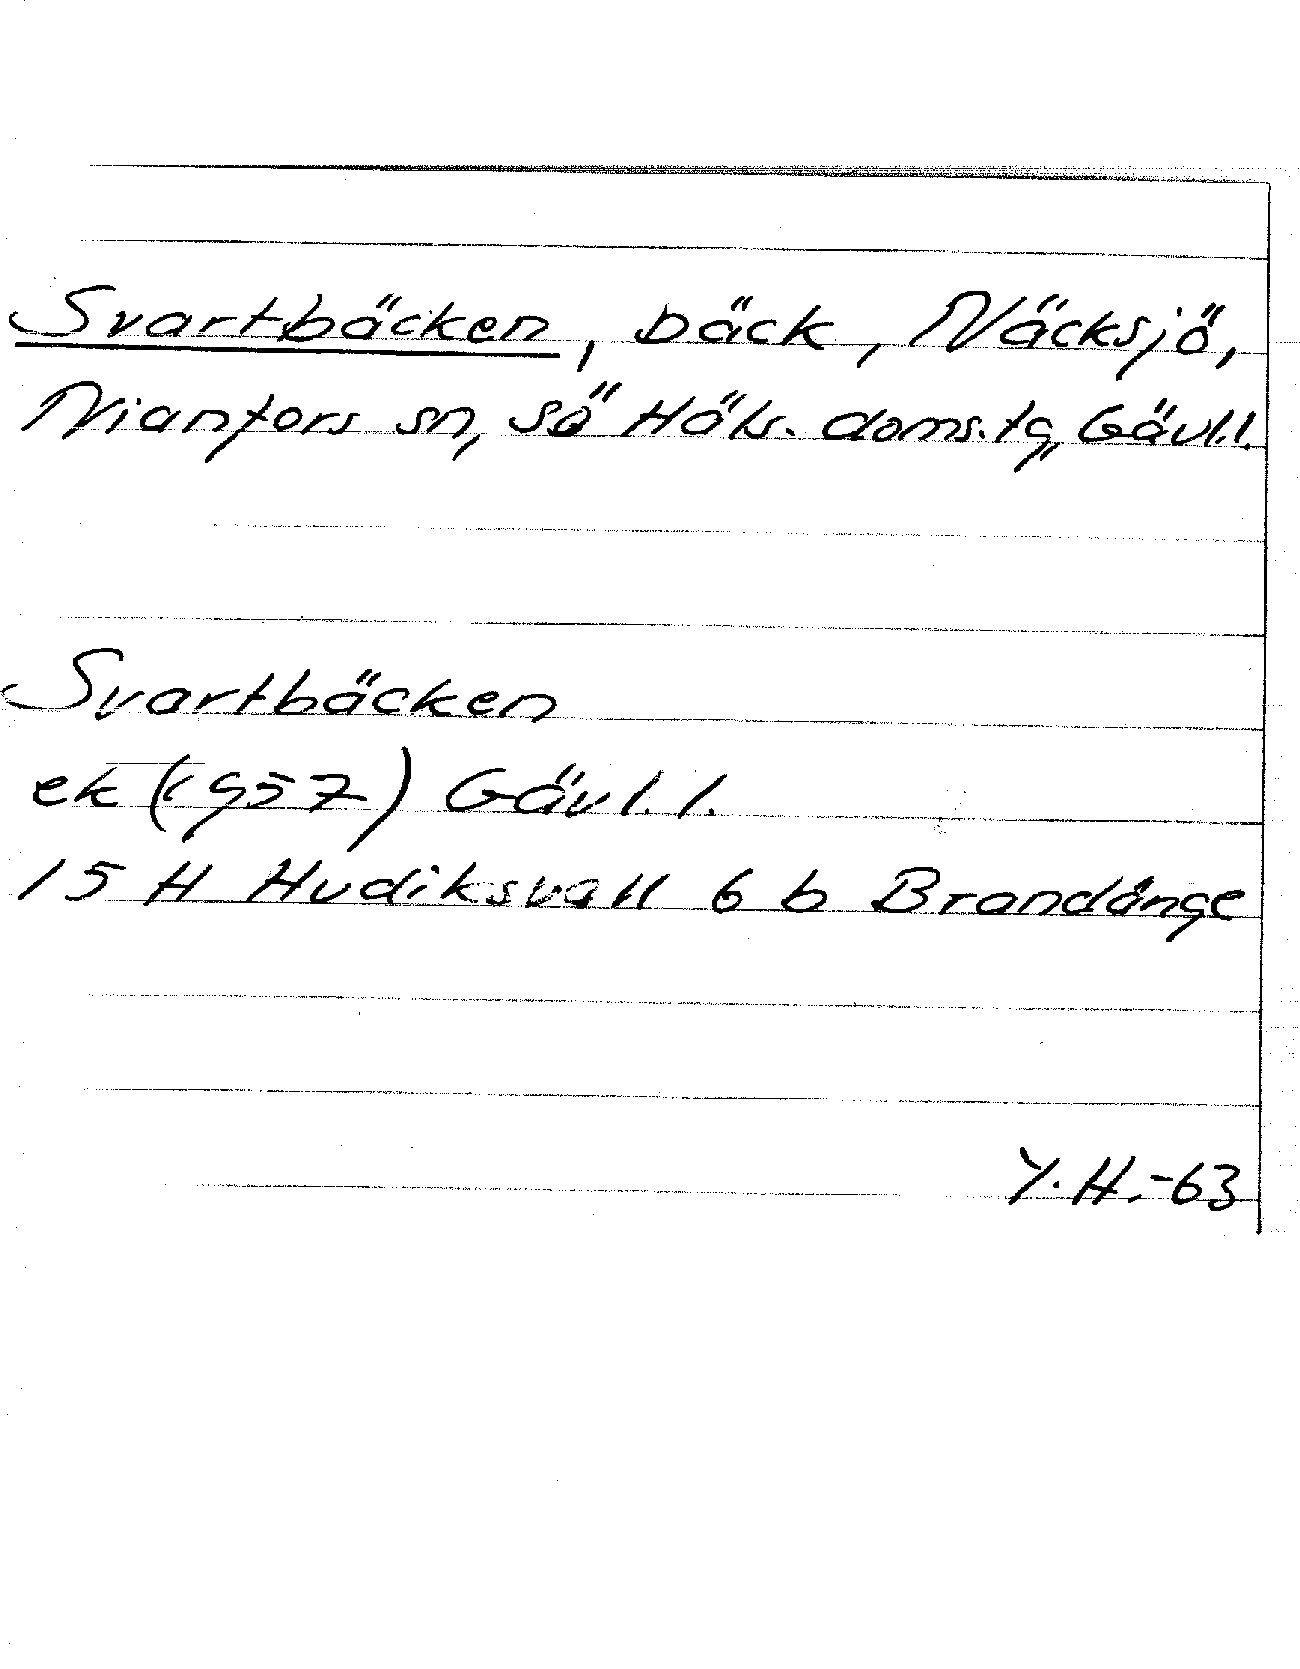 Svartbäcken, bäck, Näcksjö,
Nianfors sn, Sö Häls. doms.tg, Gävl.l.
Svartbäcken
ek (1957) Gävl.l.
15 H Hudiksvall 6 b Brandänge
Y.H.-63